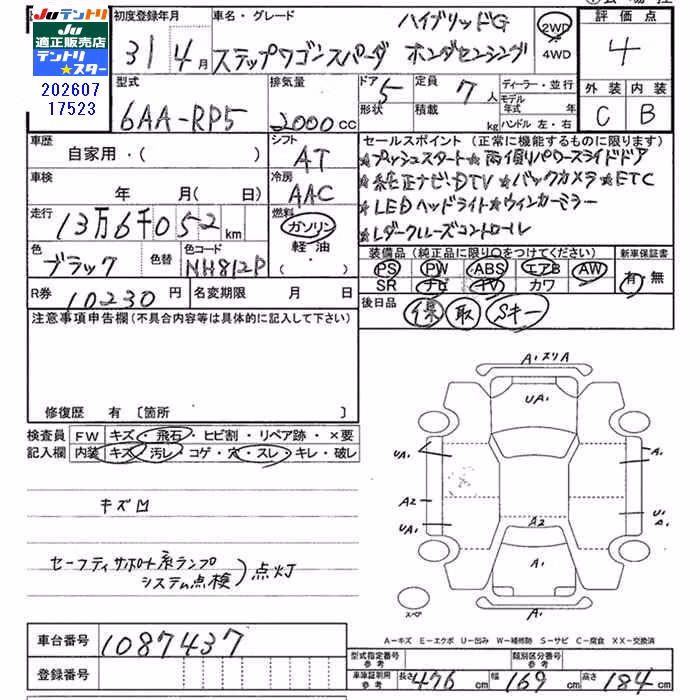 JUテントリ
JU
適正販売店
テントリ
★スター
202607
17523
初度登録年月
31年4月
車名・グレード
ハイブリッドG
ステップワゴンスパーダ ホンダセンシング
2WD
4WD
評価点
4
外装 内装
C B
型式
6AA-RP5
排気量
2000cc
ドア 5
形状
定員 7人
積載 kg
ディーラー・並行
モデル年式 年
ハンドル 左・右
車歴
自家用・( )
シフト
AT
車検
年 月(日)
冷房
AAC
走行
13万6千052km
燃料
ガソリン
軽油
・( )
色
ブラック
色替
色コード
NH812P
R券 10230円
名変期限 月 日
セールスポイント (正常に機能するものに限ります)
★プッシュスタート★両側パワースライドドア
★純正ナビ・DTV★バックカメラ★ETC
★LEDヘッドライト★ウィンカーミラー
★レダークルーズコントロール
装備品 (純正品に限り○をつけてください)
PS PW ABS エアB AW
SR ナビ TV カワ
新車保証書
有・無
後日品
保 取 Sキー
注意事項申告欄 (不具合内容等は具体的に記入して下さい)
修復歴 有 〔箇所 〕
検査員
記入欄
FW キズ・飛石・ヒビ割・リペア跡・×要
内装 キズ・汚レ・コゲ・穴・スレ・キレ・破レ
セーフティサポート系ランプ
システム点検 )点灯
A1 スリA
UA1
UA1
A1
A2
UA1
U1
A1
A2
A1
A1
スペア
A-キズ E-エクボ U-凹み W-補修跡 S-サビ C-腐食 XX-交換済
車台番号 1087437
登録番号
型式指定番号
参考
類別区分番号
参考
車庫証明用
参考
長さ 476cm 幅 169cm 高さ 184cm